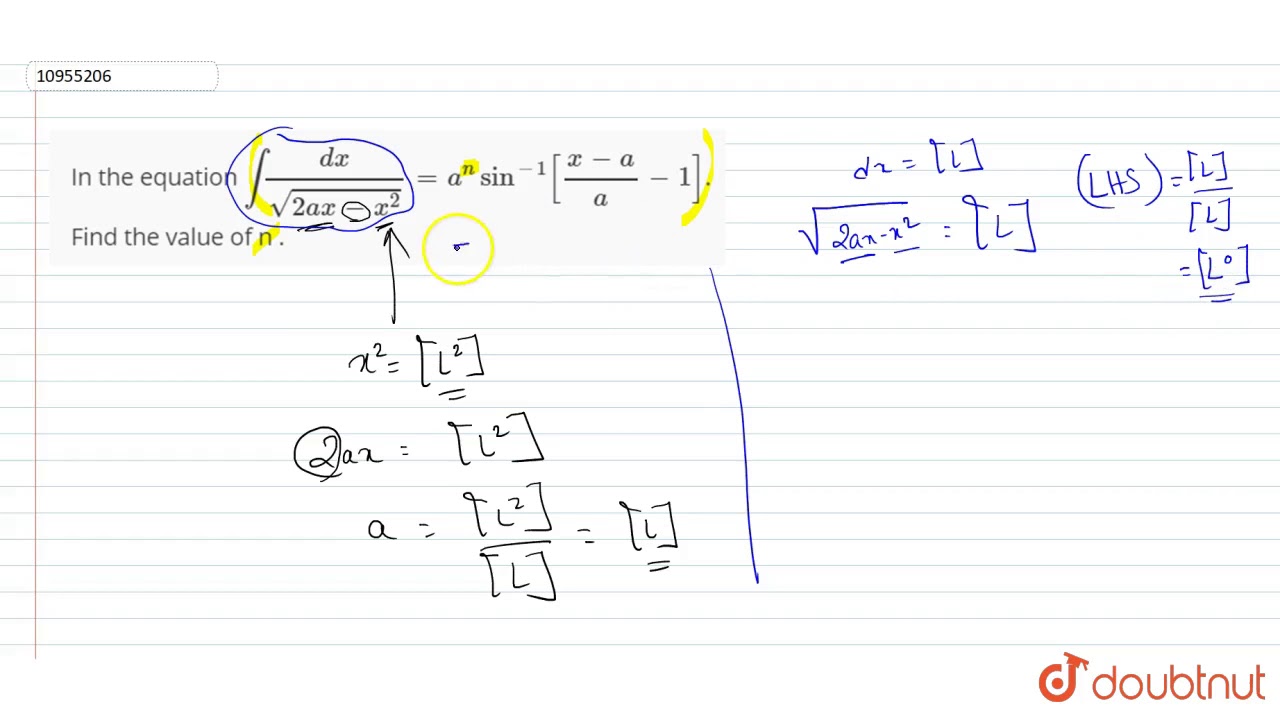 10955206
In the equation ∫ dx / √(2ax − x²) = aⁿ sin⁻¹ [ (x − a) / a − 1 ].
Find the value of n .
dx = [L]
√(2ax-x²) = [L]
(LHS) = [L] / [L]
= [L⁰]
x² = [L²]
2ax = [L²]
a = [L²] / [L] = [L]
doubtnut